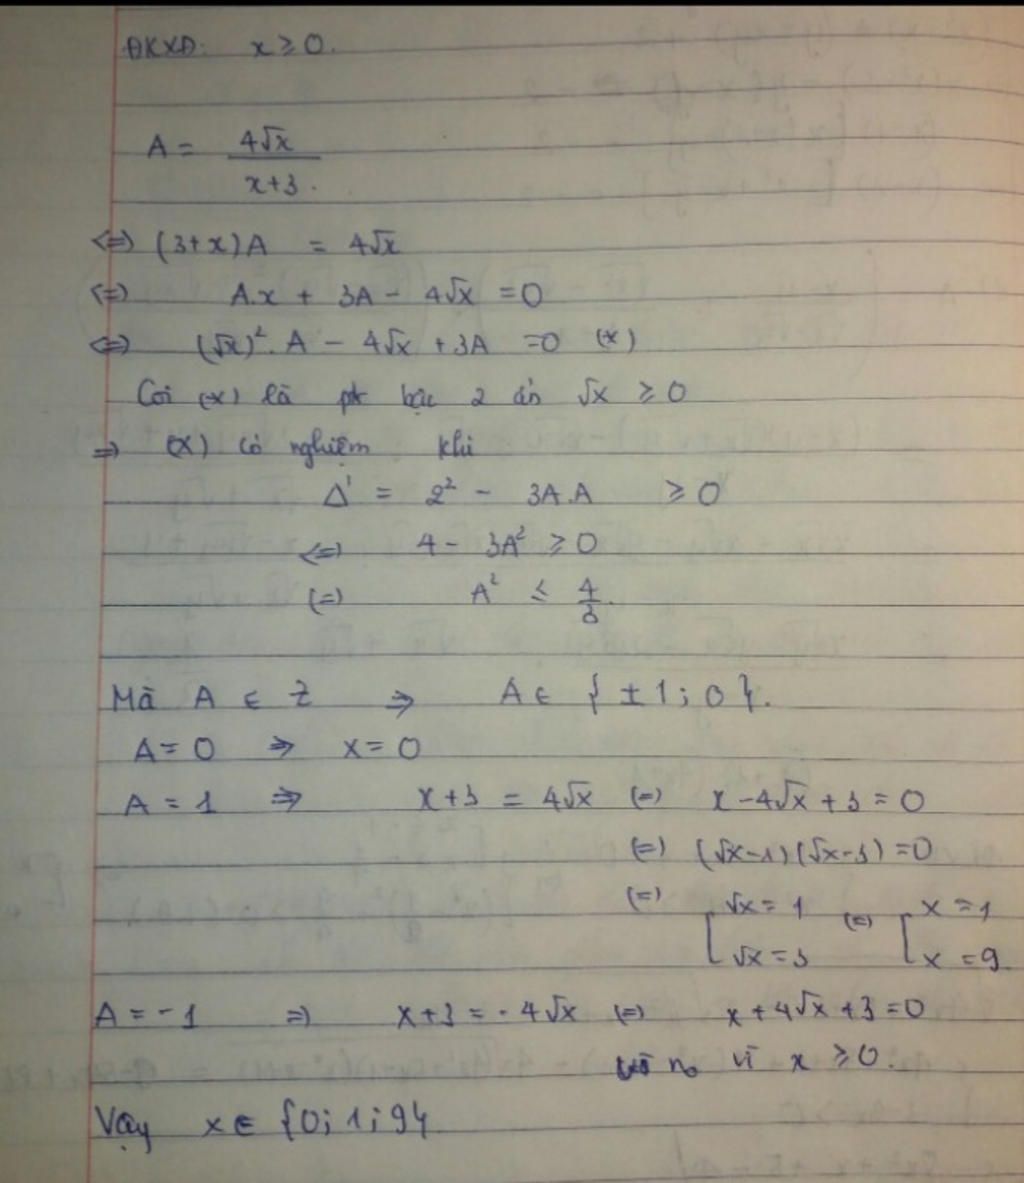 ĐKXĐ: x ≥ 0.
A = 4√x / x+3.
<=> (3+x)A = 4√x
<=> A.x + 3A - 4√x = 0
<=> (√x)². A - 4√x + 3A = 0 (*)
Coi (*) là pt bậc 2 ẩn √x ≥ 0
=> (*) có nghiệm khi
Δ' = 2² - 3A.A ≥ 0
<=> 4 - 3A² ≥ 0
(=) A² ≤ 4/3.
Mà A ∈ Z => A ∈ { ±1; 0 }.
A = 0 => x = 0
A = 1 => x+3 = 4√x (=) x - 4√x + 3 = 0
(=) (√x-1)(√x-3) = 0
(=) [ √x = 1 (=) [ x = 1
√x = 3 x = 9
A = -1 => x+3 = -4√x (=) x + 4√x + 3 = 0
vô no vì x ≥ 0.
Vậy x ∈ {0; 1; 9}